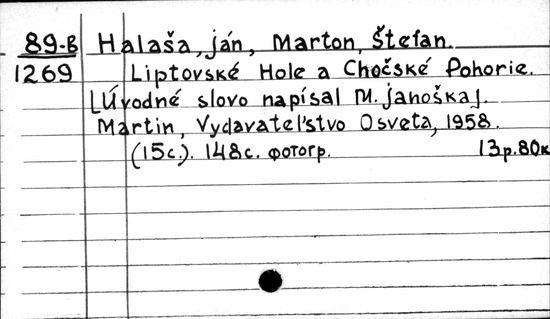 89-B Halaša, ján, Marton, Štefan.
1269 Liptovské Hole a Chočské Pohorie.
[Úvodné slovo napísal M. janoška].
Martin, Vydavatel'stvo Osveta, 1958.
(15с.). 148с. фотогр. 13р.80к